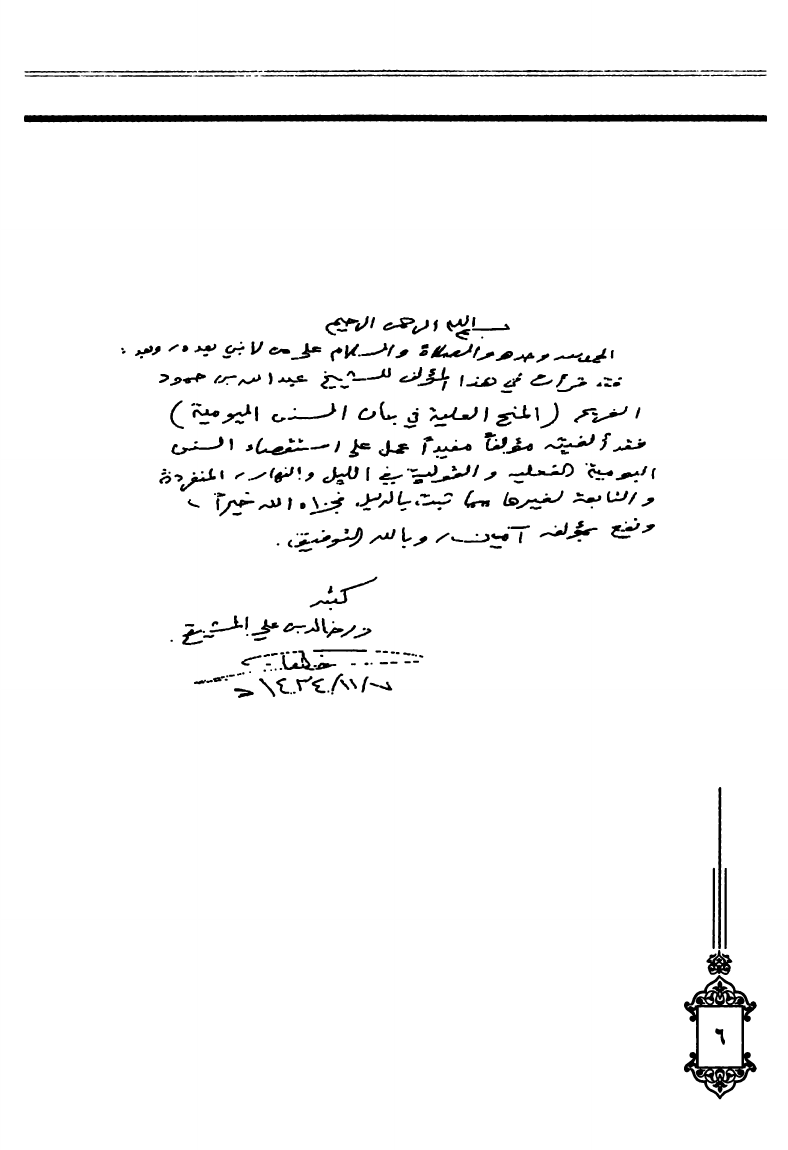 بسم الله الرحمن الرحيم
الحمد لله وحده والصلاة والسلام على من لا نبي بعده، وبعد :
فقد قرأت في هذا المؤلف للشيخ عبدالله بن حمود
الفريح (المنح العلية في بيان السنن اليومية)
فقد ألفيته مؤلفاً مفيداً عمل على استقصاء السنن
اليومية الفعلية والقولية في الليل والنهار، المنفردة
والتابعة لغيرها مما ثبت بالدليل فجزاه الله خيراً ،
ونفع بمؤلفه آمين، وبالله التوفيق .
كتبه
د. خالد بن علي المشيقح .
١٤٣٤/١١/٧هـ
٦